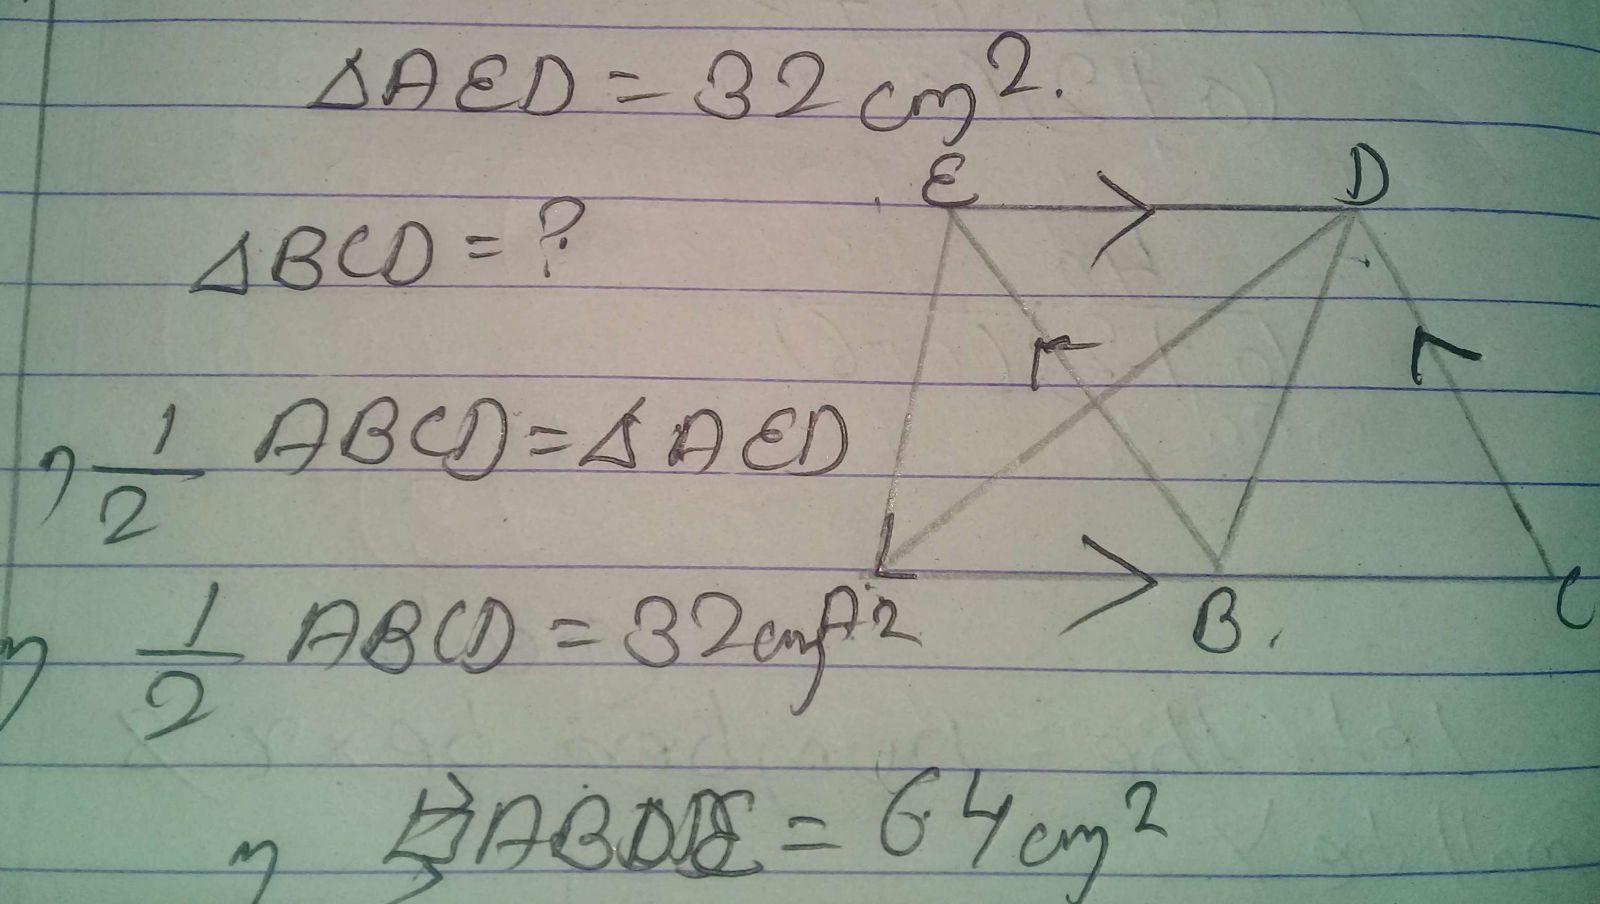 △AED = 32 cm².
E D
△BCD = ?
1/2 ABCD = △AED
1/2 ABCD = 32 cm²
A B. C
ABDE = 64 cm²